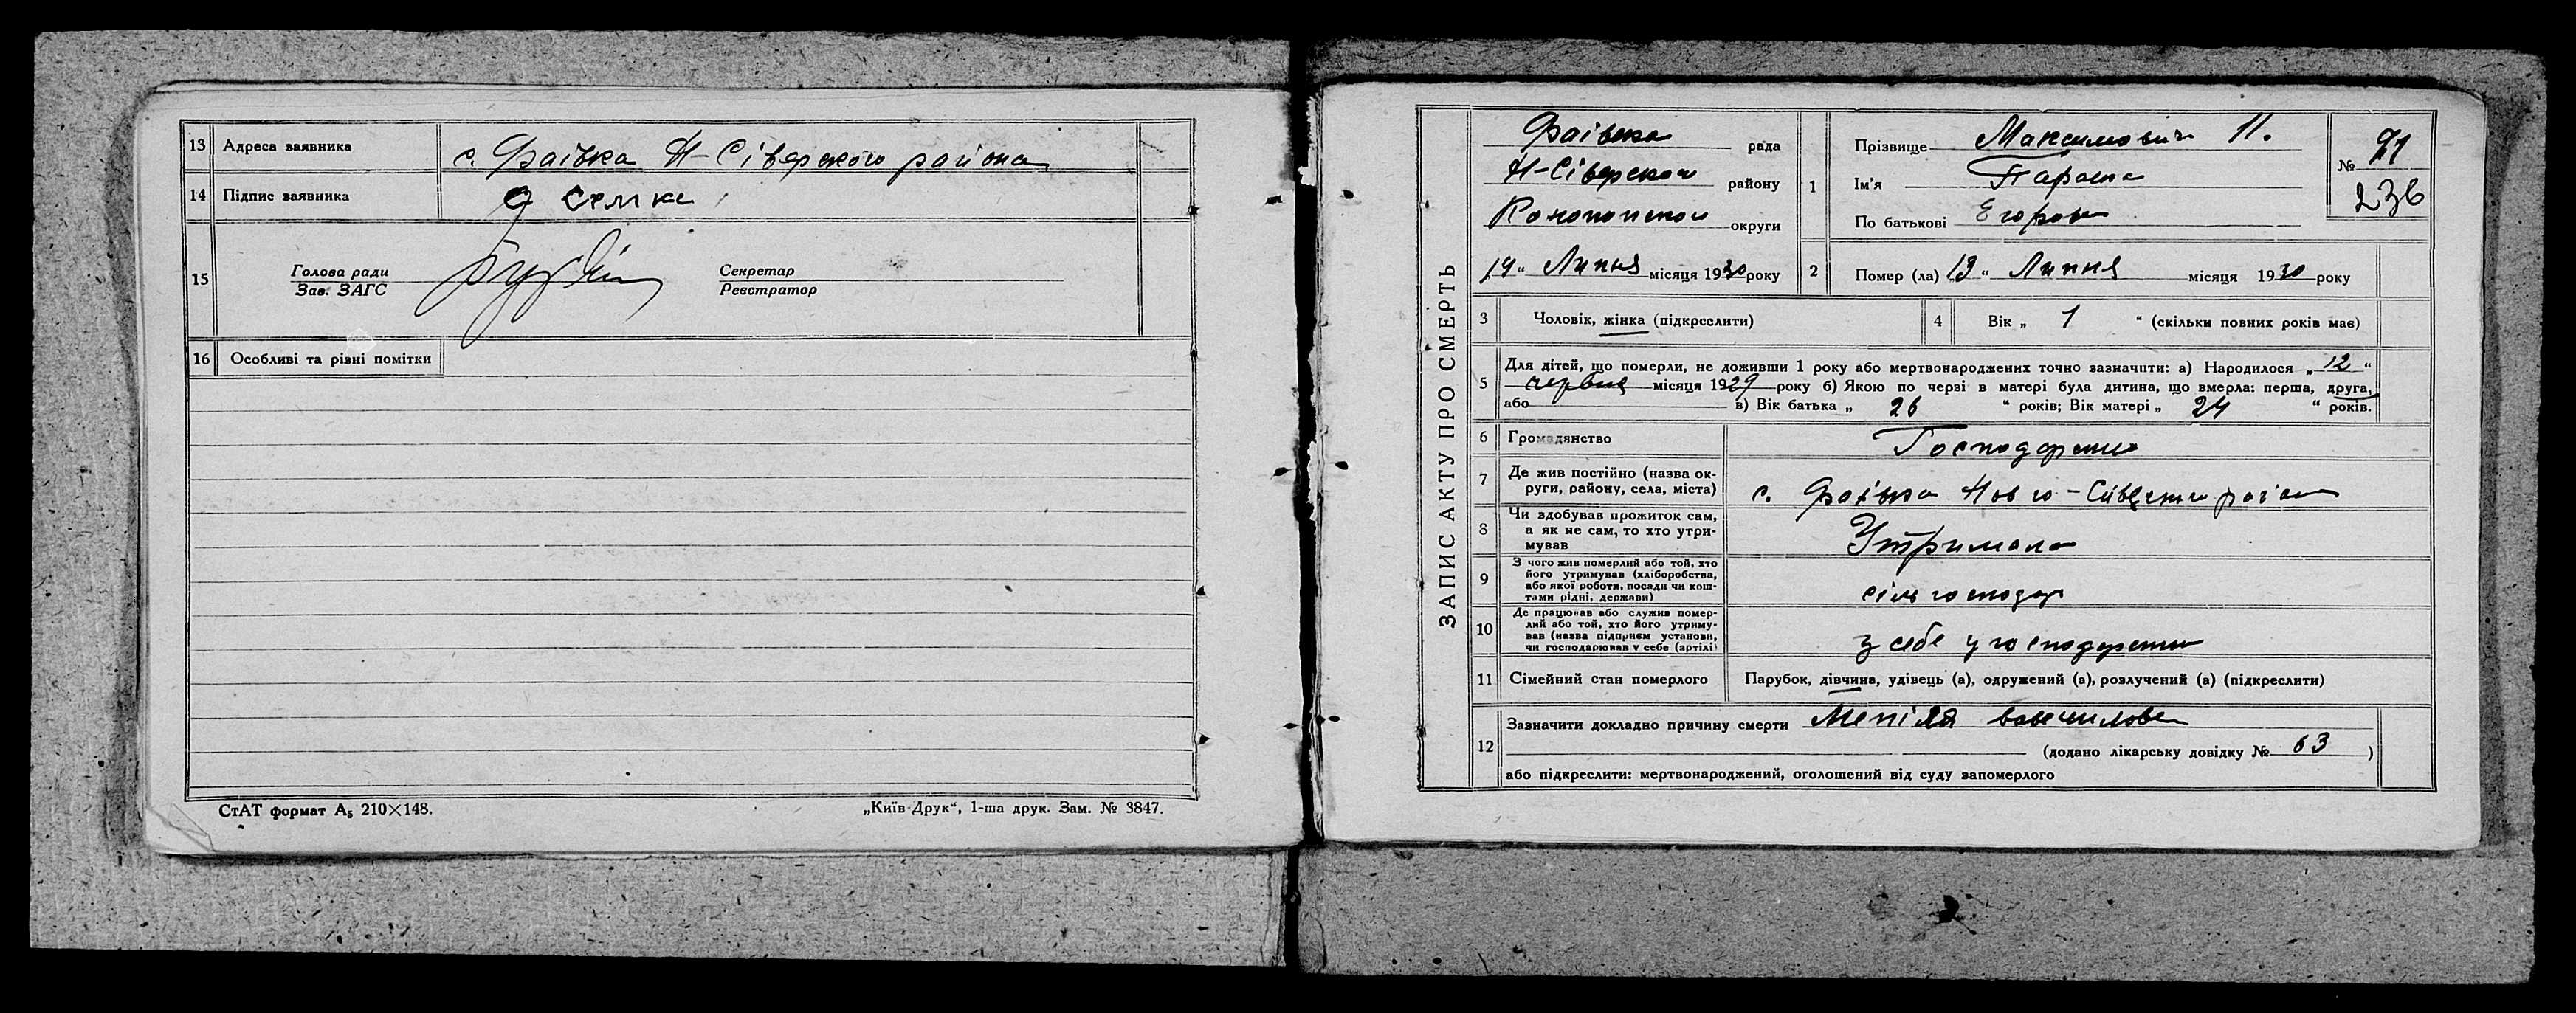 13 Адреса заявника с. Фаївка Н-Сіверского района
14 Підпис заявника
15 Голова ради Секретар
Зав. ЗАГС Реєстратор
16 Особливі та різні помітки
СтАТ формат А₅ 210×148. „Київ-Друк“, 1-ша друк. Зам. № 3847.
ЗАПИС АКТУ ПРО СМЕРТЬ
Фаівска рада
Н-Сіверскои району
Конотопскои округи
19 “ Липня місяця 1930 року
1 Прізвище Максимович П.
Ім'я Параска
По батькові Егоровн
№ 71
236
2 Помер (ла) 13 “ Липня місяця 1930 року
3 Чоловік, жінка (підкреслити)
4 Вік „ 1 “ (скільки повних років має)
5 Для дітей, що померли, не доживши 1 року або мертвонароджених точно зазначити: а) Народилося „ 12 “
червня місяця 1929 року б) Якою по черзі в матері була дитина, що вмерла: перша, друга,
або в) Вік батька „ 26 “ років; Вік матері „ 24 “ років.
6 Громадянство
7 Де жив постійно (назва ок-
руги, району, села, міста) с. Фаівка Новго-Сіверского района
8 Чи здобував прожиток сам,
а як не сам, то хто утри-
мував Утримала
9 З чого жив померлий або той, хто
його утримував (хліборобства,
або якої роботи, посади чи кош-
тами рідні, держави) сільгосподар
10 Де працював або служив помер-
лий або той, хто його утриму-
вав (назва підприєм установи,
чи господарював у себе (артілі) з себе у господарстві
11 Сімейний стан померлого Парубок, дівчина, удівець (а), одружений (а), розлучений (а) (підкреслити)
12 Зазначити докладно причину смерти
(додано лікарську довідку № 63 )
або підкреслити: мертвонароджений, оголошений від суду запомерлого